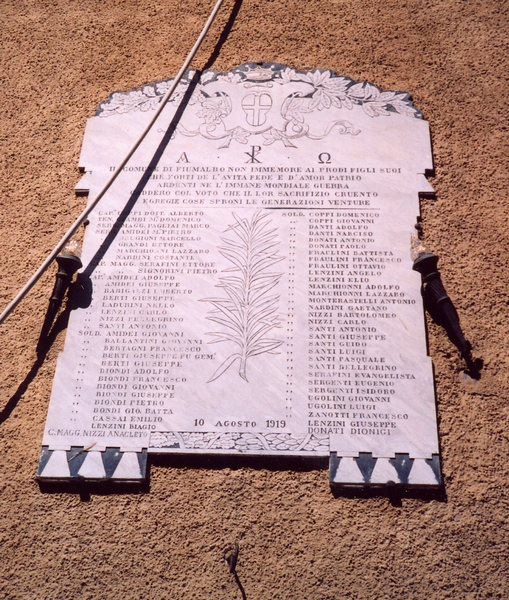 Α ☧ Ω
IL COMUNE DI FIUMALBO NON IMMEMORE AI PRODI FIGLI SUOI
CHE FORTI DE L'AVITA FEDE E D'AMOR PATRIO
ARDENTI NE L'IMMANE MONDIALE GUERRA
CEDERO COL VOTO CHE IL LOR SACRIFIZIO CRUENTO
EGREGIE COSE SPRONI LE GENERAZIONI VENTURE
CAP. COPPI DOTT. ALBERTO
TEN. DOMENICO
SERG. MAGG. PAGLIAI MARCO
SERG. AMIDEI PIETRO
MARCELLO
GRANDI ETTORE
MARCHIONNI LAZZARO
NARDINI COSTANTE
MAGG. SERAFINI ETTORE
SIGNORINI PIETRO
AMIDEI ADOLFO
AMIDEI GIUSEPPE
BARIGAZZI UMBERTO
BERTI GIUSEPPE
LADURINI NELLO
LENZINI CARLO
NIZZI PELLEGRINO
SANTI ANTONIO
SOLD. AMIDEI GIOVANNI
BALLANTINI GIOVANNI
BERTAGNI FRANCESCO
BERTI GIUSEPPE FU GEM.
BERTI GIUSEPPE
BIONDI ADOLFO
BIONDI FRANCESCO
BIONDI GIOVANNI
BIONDI GIUSEPPE
BIONDI PIETRO
BONDI GIO. BATTA
CASSAI EMILIO
LENZINI BIAGIO
C. MAGG. NIZZI ANACLETO
SOLD. COPPI DOMENICO
„ COPPI GIOVANNI
„ DANTI ADOLFO
„ DANTI NARCISO
„ DONATI ANTONIO
„ DONATI PAOLO
„ FRAULINI BATTISTA
„ FRAULINI FRANCESCO
„ FRAULINI OTTAVIO
„ LENZINI ANGELO
„ LENZINI ELIO
„ MARCHIONNI ADOLFO
„ MARCHIONNI LAZZARO
„ MONTERASTELLI ANTONIO
„ NARDINI GAETANO
„ NIZZI BARTOLOMEO
„ NIZZI CARLO
„ SANTI ANTONIO
„ SANTI GIUSEPPE
„ SANTI GUIDO
„ SANTI LUIGI
„ SANTI PASQUALE
„ SANTI PELLEGRINO
„ SERAFINI EVANGELISTA
„ SERGENTI EUGENIO
„ SERGENTI ISIDORO
„ UGOLINI GIOVANNI
„ UGOLINI LUIGI
„ ZANOTTI FRANCESCO
„ LENZINI GIUSEPPE
DONATI DIONIGI
10 AGOSTO 1919